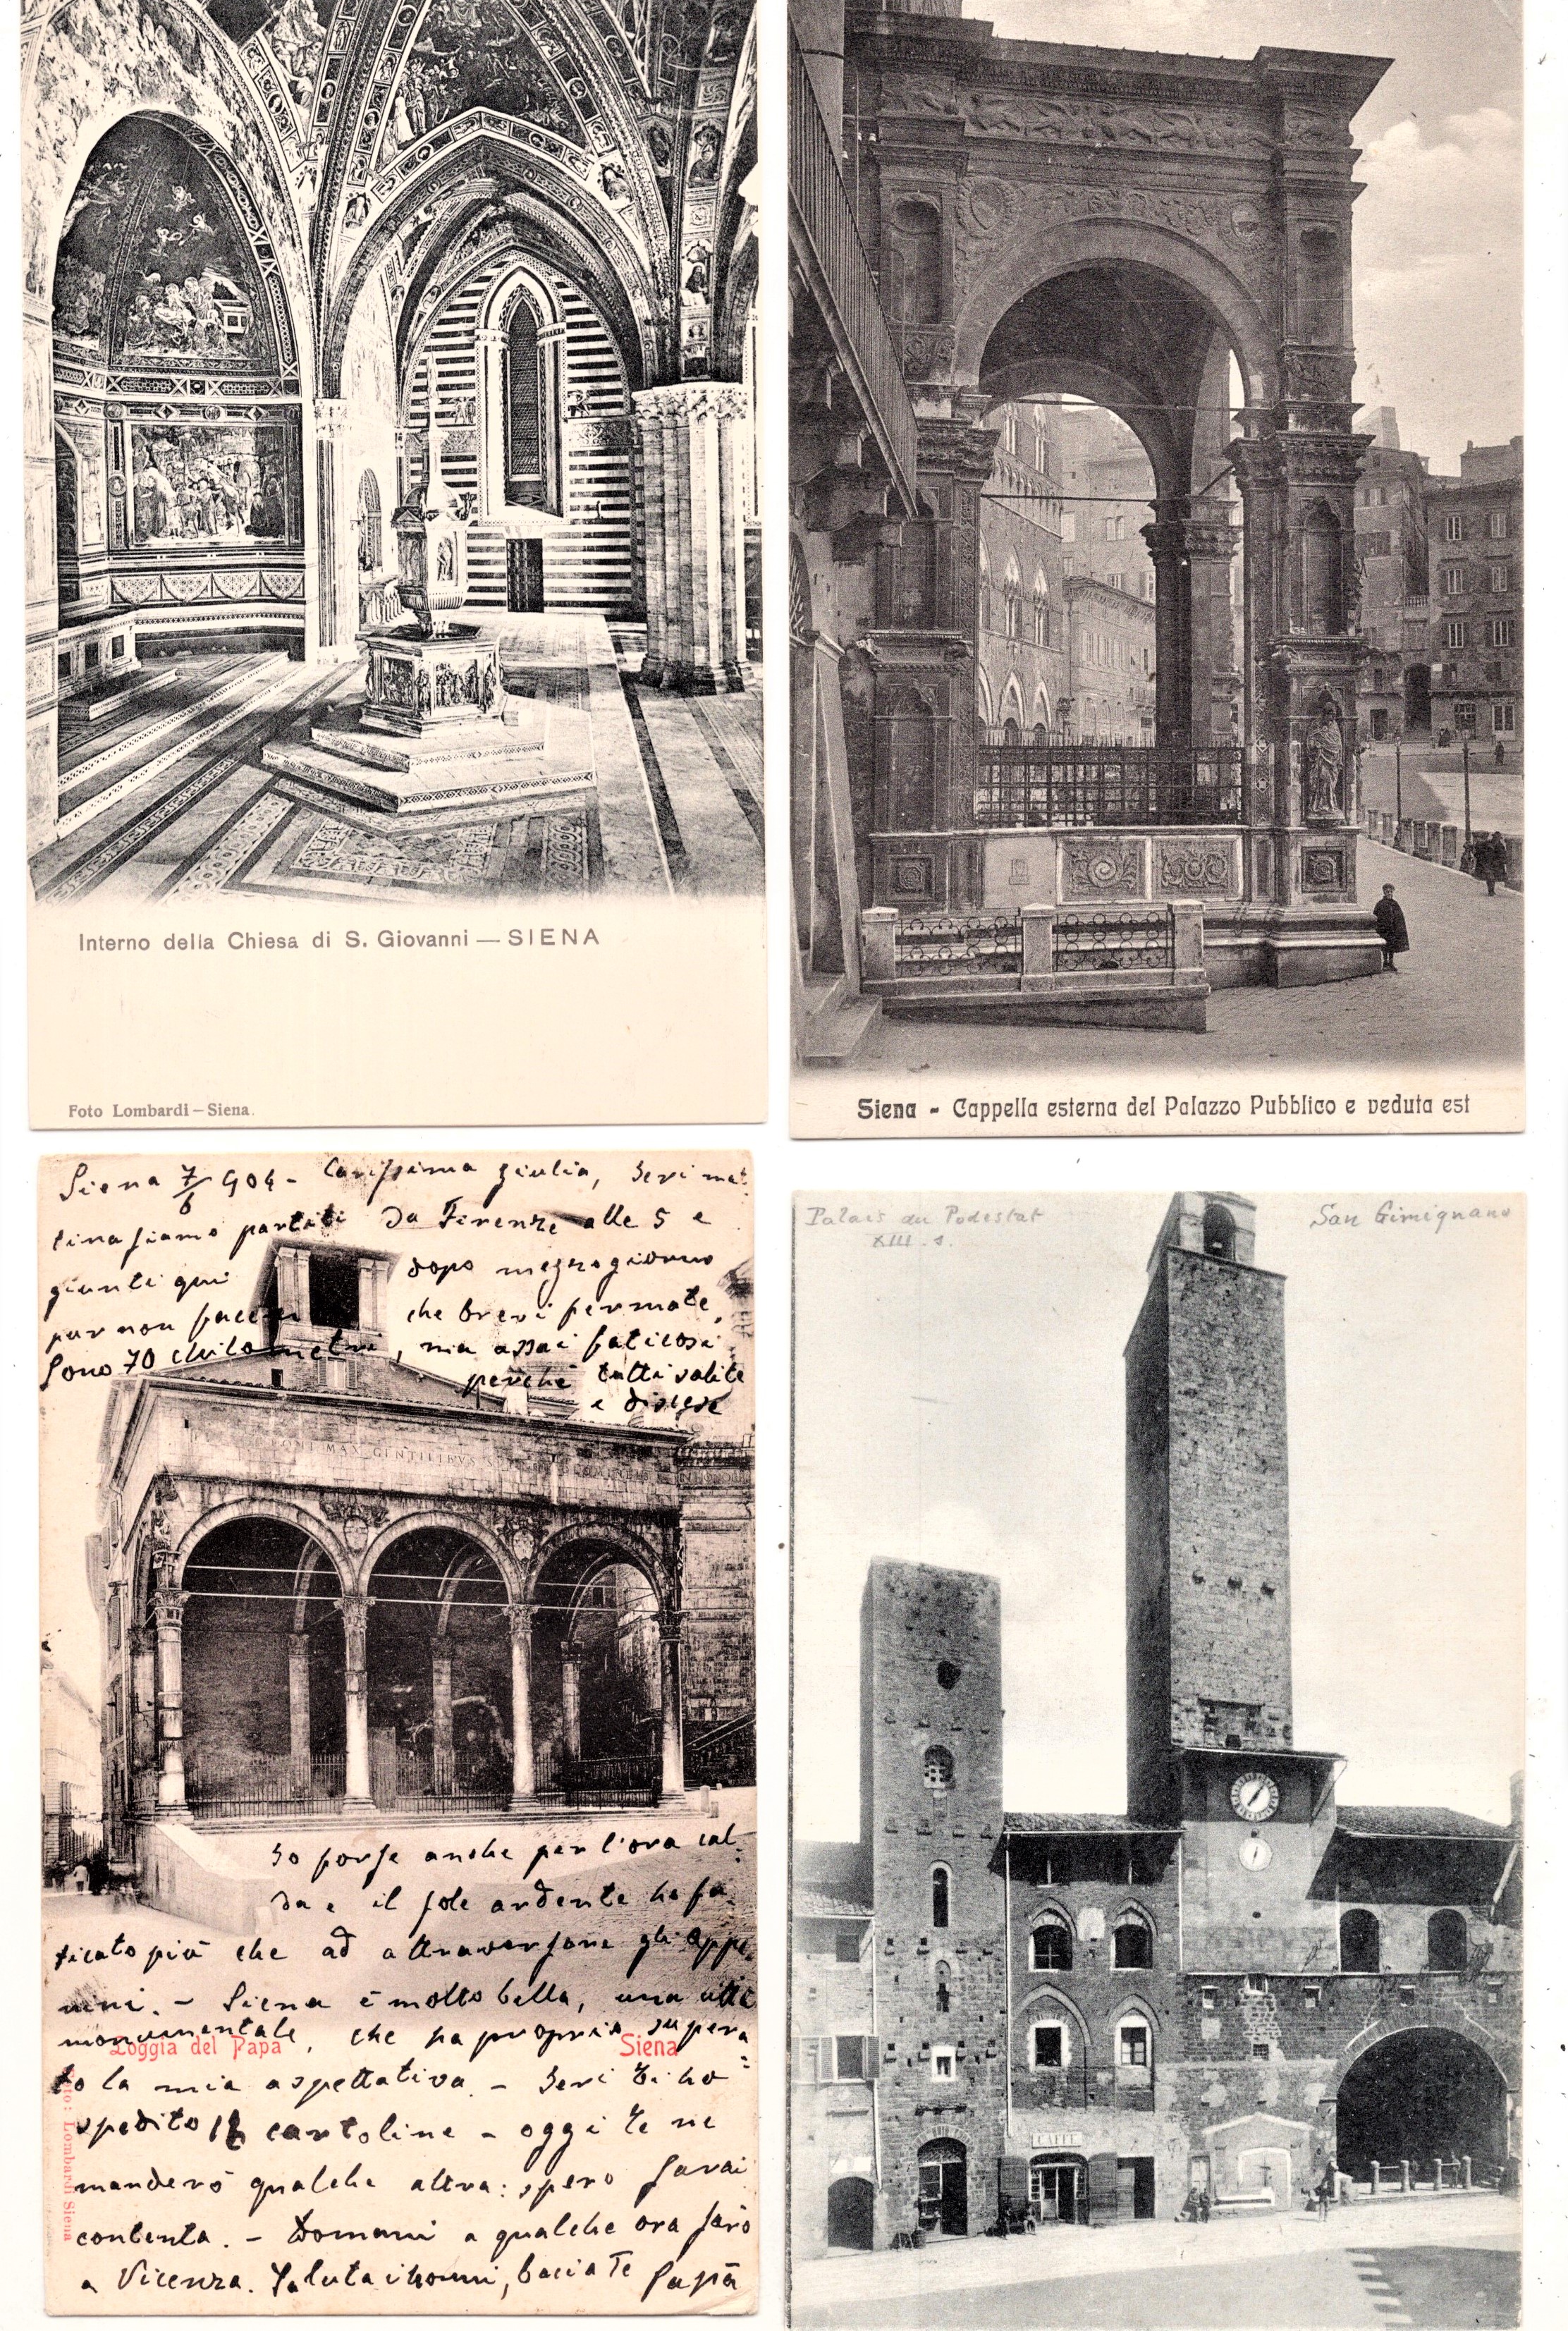 Interno della Chiesa di S. Giovanni — SIENA
Foto Lombardi – Siena.
Siena - Cappella esterna del Palazzo Pubblico e veduta est
Siena 7/6 904 - Carissima Giulia, Ieri mat
tina siamo partiti da Firenze alle 5 e
giunti qui dopo mezzogiorno
pur non che brevi fermate,
Sono 70 chilometri, ma assai faticosi
perché tutti salite
e discese
PONT MAX GENTILIBVS SVIS
Io forse anche per l'ora cal
da e il sole ardente ho fa
ticato più che ad attraversare gli Appe
nini. - Siena è molto bella, una città
monumentale, che ha proprio supera
Loggia del Papa Siena
to la mia aspettativa. - Ieri ti ho
spedito cartoline - oggi te ne
manderò qualche altra: spero sarai
contenta. - Domani a qualche ora sarò
a Vicenza. Saluta i nonni, bacia te Papà
Foto: Lombardi Siena
Palais du Podestat San Gimignano
XIII. s.
CAFFÈ